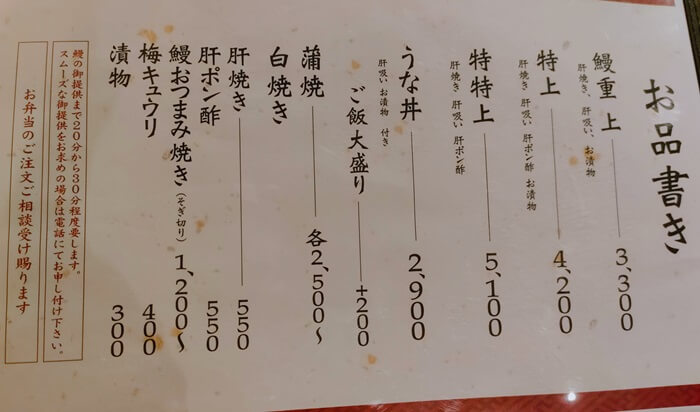 お品書き
鰻重 上 3,300
肝焼き、肝吸い、お漬物
特上 4,200
肝焼き 肝吸い 肝ポン酢 お漬物
特特上 5,100
肝焼き 肝吸い 肝ポン酢
うな丼 2,900
肝吸い お漬物 付き
ご飯大盛り +200
蒲焼 各2,500〜
白焼き
肝焼き 550
肝ポン酢 550
鰻おつまみ焼き(そぎ切り) 1,200〜
梅キュウリ 400
漬物 300
鰻の御提供まで20分から30分程度要します。
スムーズな御提供をお求めの場合は電話にてお申し付け下さい。
お弁当のご注文ご相談受け賜ります